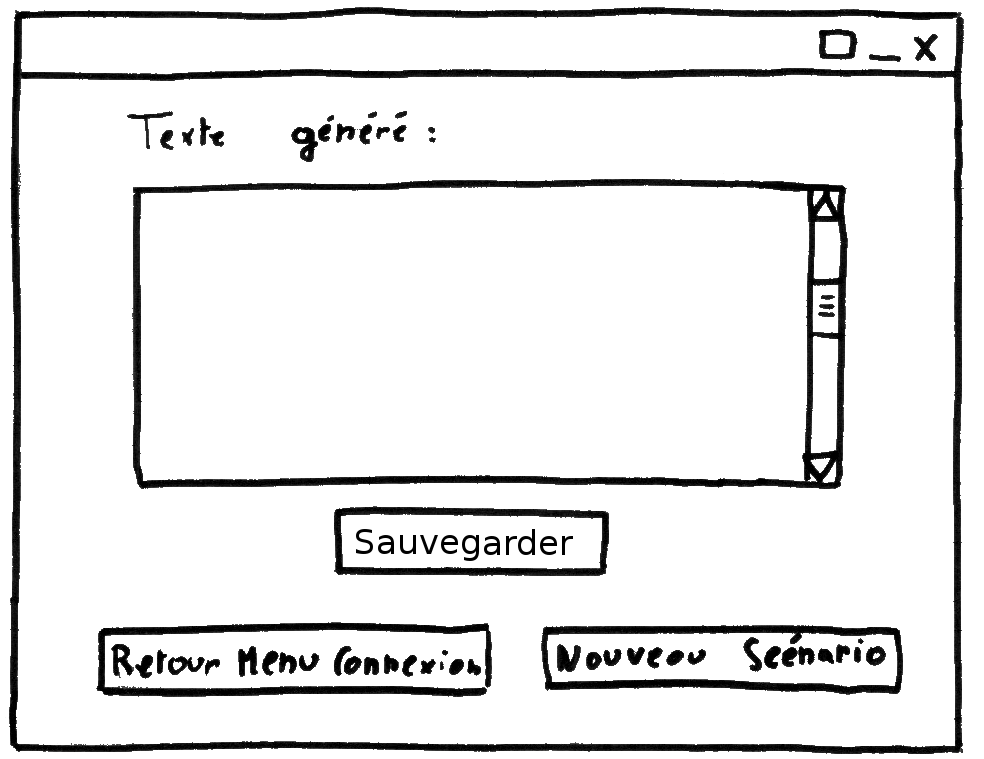 Texte généré :
Sauvegarder
Retour Menu Connexion
Nouveau Scénario